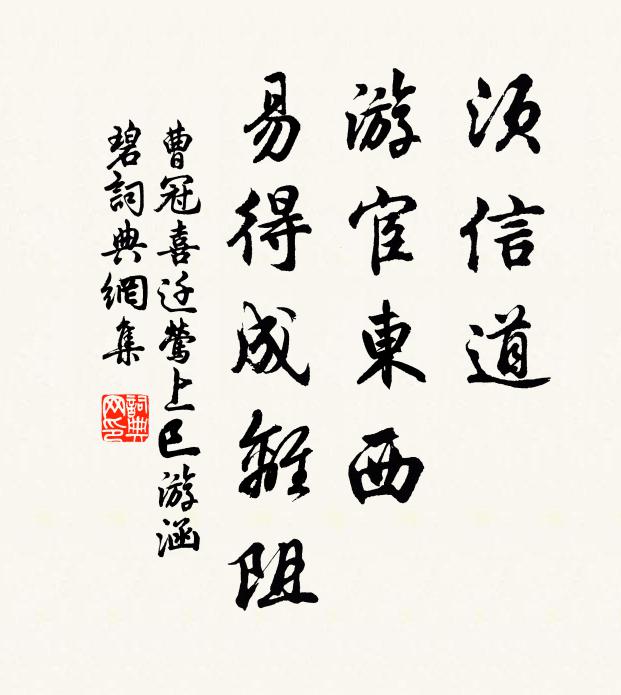 須信道
游宦東西
易得成離阻
曹冠喜迁鶯上巳游涵
碧詞典網集
詞典
网印